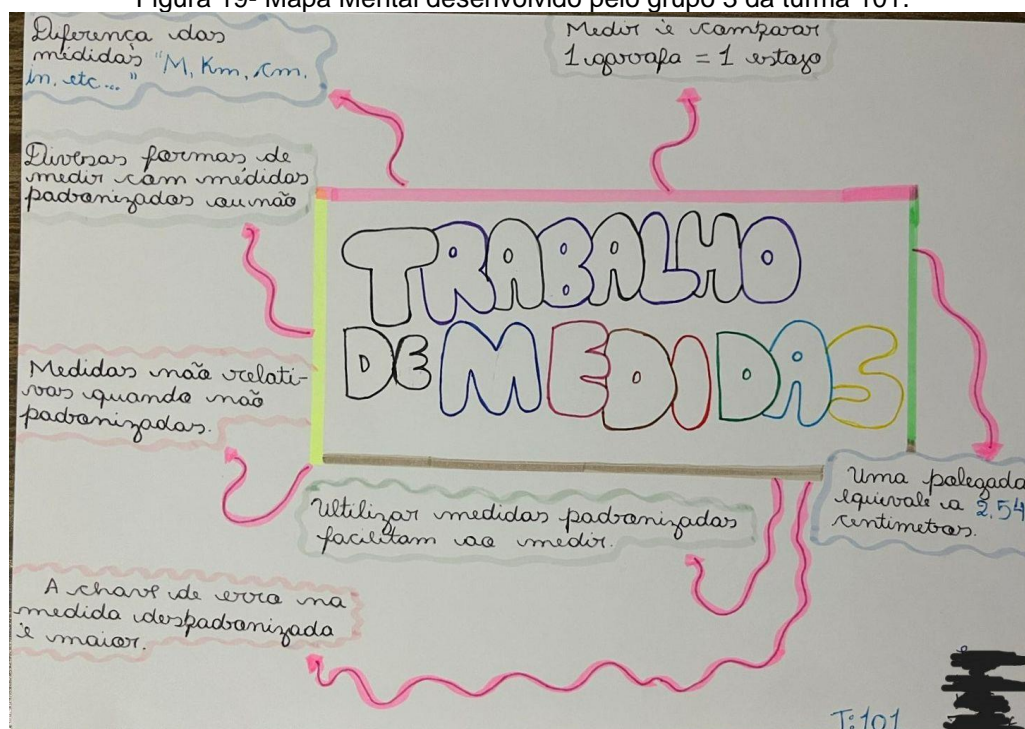 Figura 19- Mapa Mental desenvolvido pelo grupo 3 da turma 101.
Diferença das
médidas "M, Km, cm,
in, etc..."
Medir é comparar
1 garrafa = 1 estojo
Diversas formas de
medir com médidas
padronizadas ou não
TRABALHO
DE MEDIDAS
Medidas não relati-
vas quando não
padronizadas.
Uma polegada
equivale a 2,54
centimetros.
Ultilizar medidas padronizadas
facilitam ao medir.
A chave de erro na
medida despadronizada
é maior.
T:101